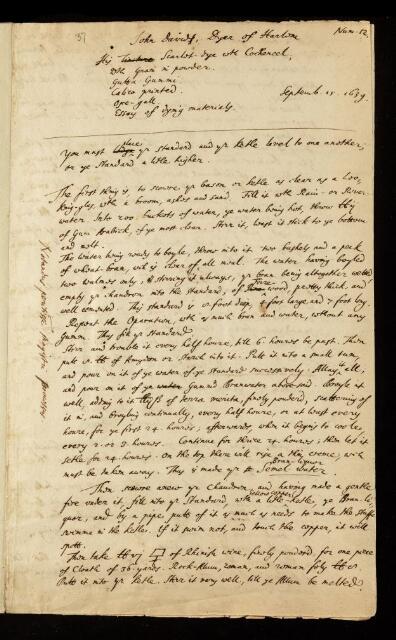 37
John Davids, Dyer of Harlem
Num. 52.
His Scarlet-dye wth Cocheneel,
Wth Grain in powder.
Gutta Gummi
Calico printed.
Oxe-gall.
Essay of dying materials.
Septemb. 15. 1639.
You must place yr standard and yr ketle level to one another,
or ye Standard a litle higher.
The first thing is, to scowre yr bason or ketle as clear as a Loo-
king-glas, wth a broom, ashes and sand. Fill it wth Rain- or River-
water. Into 200. buckets of water, ye water being hot, throw
of Gum Arabick, of ye most clean. Stirr it, least it stick to ye bottom
and melt.
The water being ready to boyle, throw into it two buskels and a peck
of wheat-bran, wch is clear of all meal. The water having boyled
two walmes only, & stirring it always, yr bran being altogether wetted
empty yr chaudron into the standard, of wood, pretty thick, and
well cemented. This standard is 8. foot deep, 4 foot large and 7 foot long.
Repeat the Operation, wth as much bran and water, without any
Gumm. Thus fill yr Standard
Stirr and trouble it every halfe houre, till 6 houres be past. Then
put of Amydon or Starch into it. Pute it into a small tun,
and pour on it of ye water of ye standard successively. Allay it all,
and pour on it of ye Gum'd Branwater abovesaid. Boyle it
well, adding to it of terra merita, finely powderd, scattering of
it in, and Boyling continually, every halfe houre, or at least every
houre, for ye first 24. houres; afterwards, when it begins to coole,
every 2. or 3. houres. Continue for thrice 24. houres; then let it
setle for 24. houres. On the top there will rise a thin creme, wch
must be taken away. This is made yr Semel water.
Bran-liquor
Then scowre anew yr Chaudron, and having made a gentle
fire under it, fill into yr Standard, with a litle ketle, ye Bran-li-
yellow copper
quor, and by a pipe, pute of it as much as needs to make the stuffe
swimme in the ketle. If it swim not, and touch the copper, it will
spott.
Then take of Rhenish wine, finely powderd, for one piece
of Cloath of 36. yards. Rock-Allum, roman, and roman foly
Pute it into yr ketle. Stirr it very well, till ye Allum be melted.